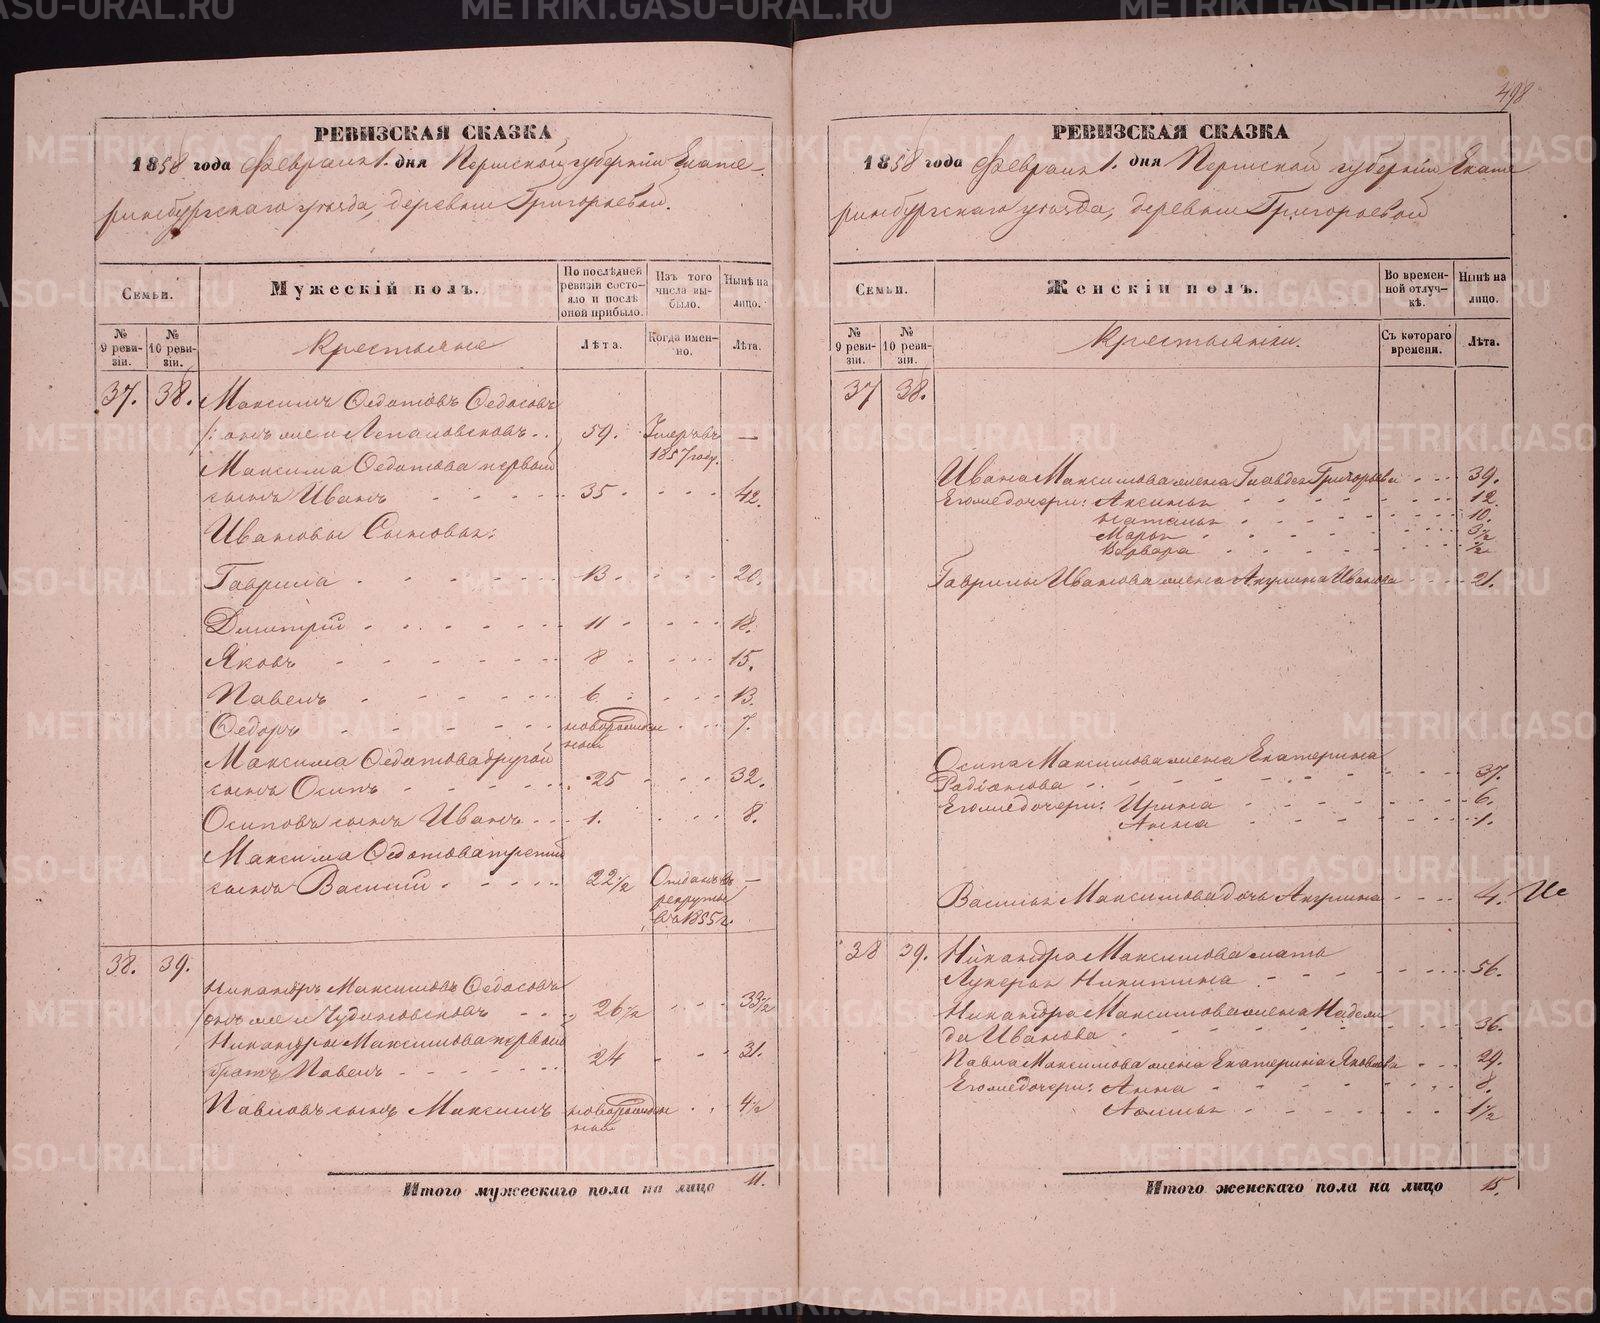 498
РЕВИЗСКАЯ СКАЗКА
1858 года Февраля 1. дня Пермской губернiи Екате-
ринбургскаго уѣзда, деревни Григорьевой.
Семьи.
Мужескiй полъ.
По послѣдней ревизiи состо-яло и послѣ оной прибыло.
Изъ того числа вы-было.
Нынѣ на лицо.
№ 9 реви-зiи.
№ 10 реви-зiи.
Крестьяне
Лѣта.
Когда имен-но.
Лѣта.
37. 38. Максимъ Федотовъ Федосовъ
59. Умеръ въ 1857 году. —
Максима Федотова первый
сынъ Иванъ 35 42.
Ивановы Сыновья:
Гаврила 13 20.
Димитрiй 11 18.
Яковъ 8 15.
Павелъ 6 13.
Федоръ новорожден ный 7.
Максима Федотова другой
сынъ Осипъ 25 32.
Осиповъ сынъ Иванъ 1. 8.
Максима Федотова третiй
сынъ Василiй 22 1/2 Отданъ въ рекруты въ 1855 г. —
38. 39.
Никандръ Максимовъ Федосовъ
онъ же и Чудиновсковъ 26 1/2 33 1/2
Никандры Максимова первый
братъ Павелъ 24 31.
Павловъ сынъ Максимъ новорожден ный 4 1/2
Итого мужескаго пола на лицо 11.
РЕВИЗСКАЯ СКАЗКА
1858 года Февраля 1. дня Пермской губернiи Екате
ринбургскаго уѣзда, деревни Григорьевой
Семьи.
Женскiй полъ.
Во времен-ной отлуч-кѣ.
Нынѣ на лицо.
№ 9 реви-зiи.
№ 10 реви-зiи.
Крестьянки.
Съ котораго времени.
Лѣта.
37 38.
Ивана Максимова жена Григорьева 39.
Его же дочери: Аксинья 12
Наталья 10.
Марья 3 1/2
Варвара 1/2
Гаврилы Иванова жена Акулина Иванова 21.
Осипа Максимова жена Екатерина
Радiонова 37.
Его же дочери: Ирина 6.
Анна 1.
Василья Максимова дочь Акулина 4.
38 39. Никандра Максимова мать
Лукерья Никитина 56.
Никандра Максимова жена Надеж
да Иванова 36.
Павла Максимова жена Екатерина Яковлева 29.
Его же дочери: Анна 8.
1 1/2
Итого женскаго пола на лицо 15.
METRIKI.GASO-URAL.RU